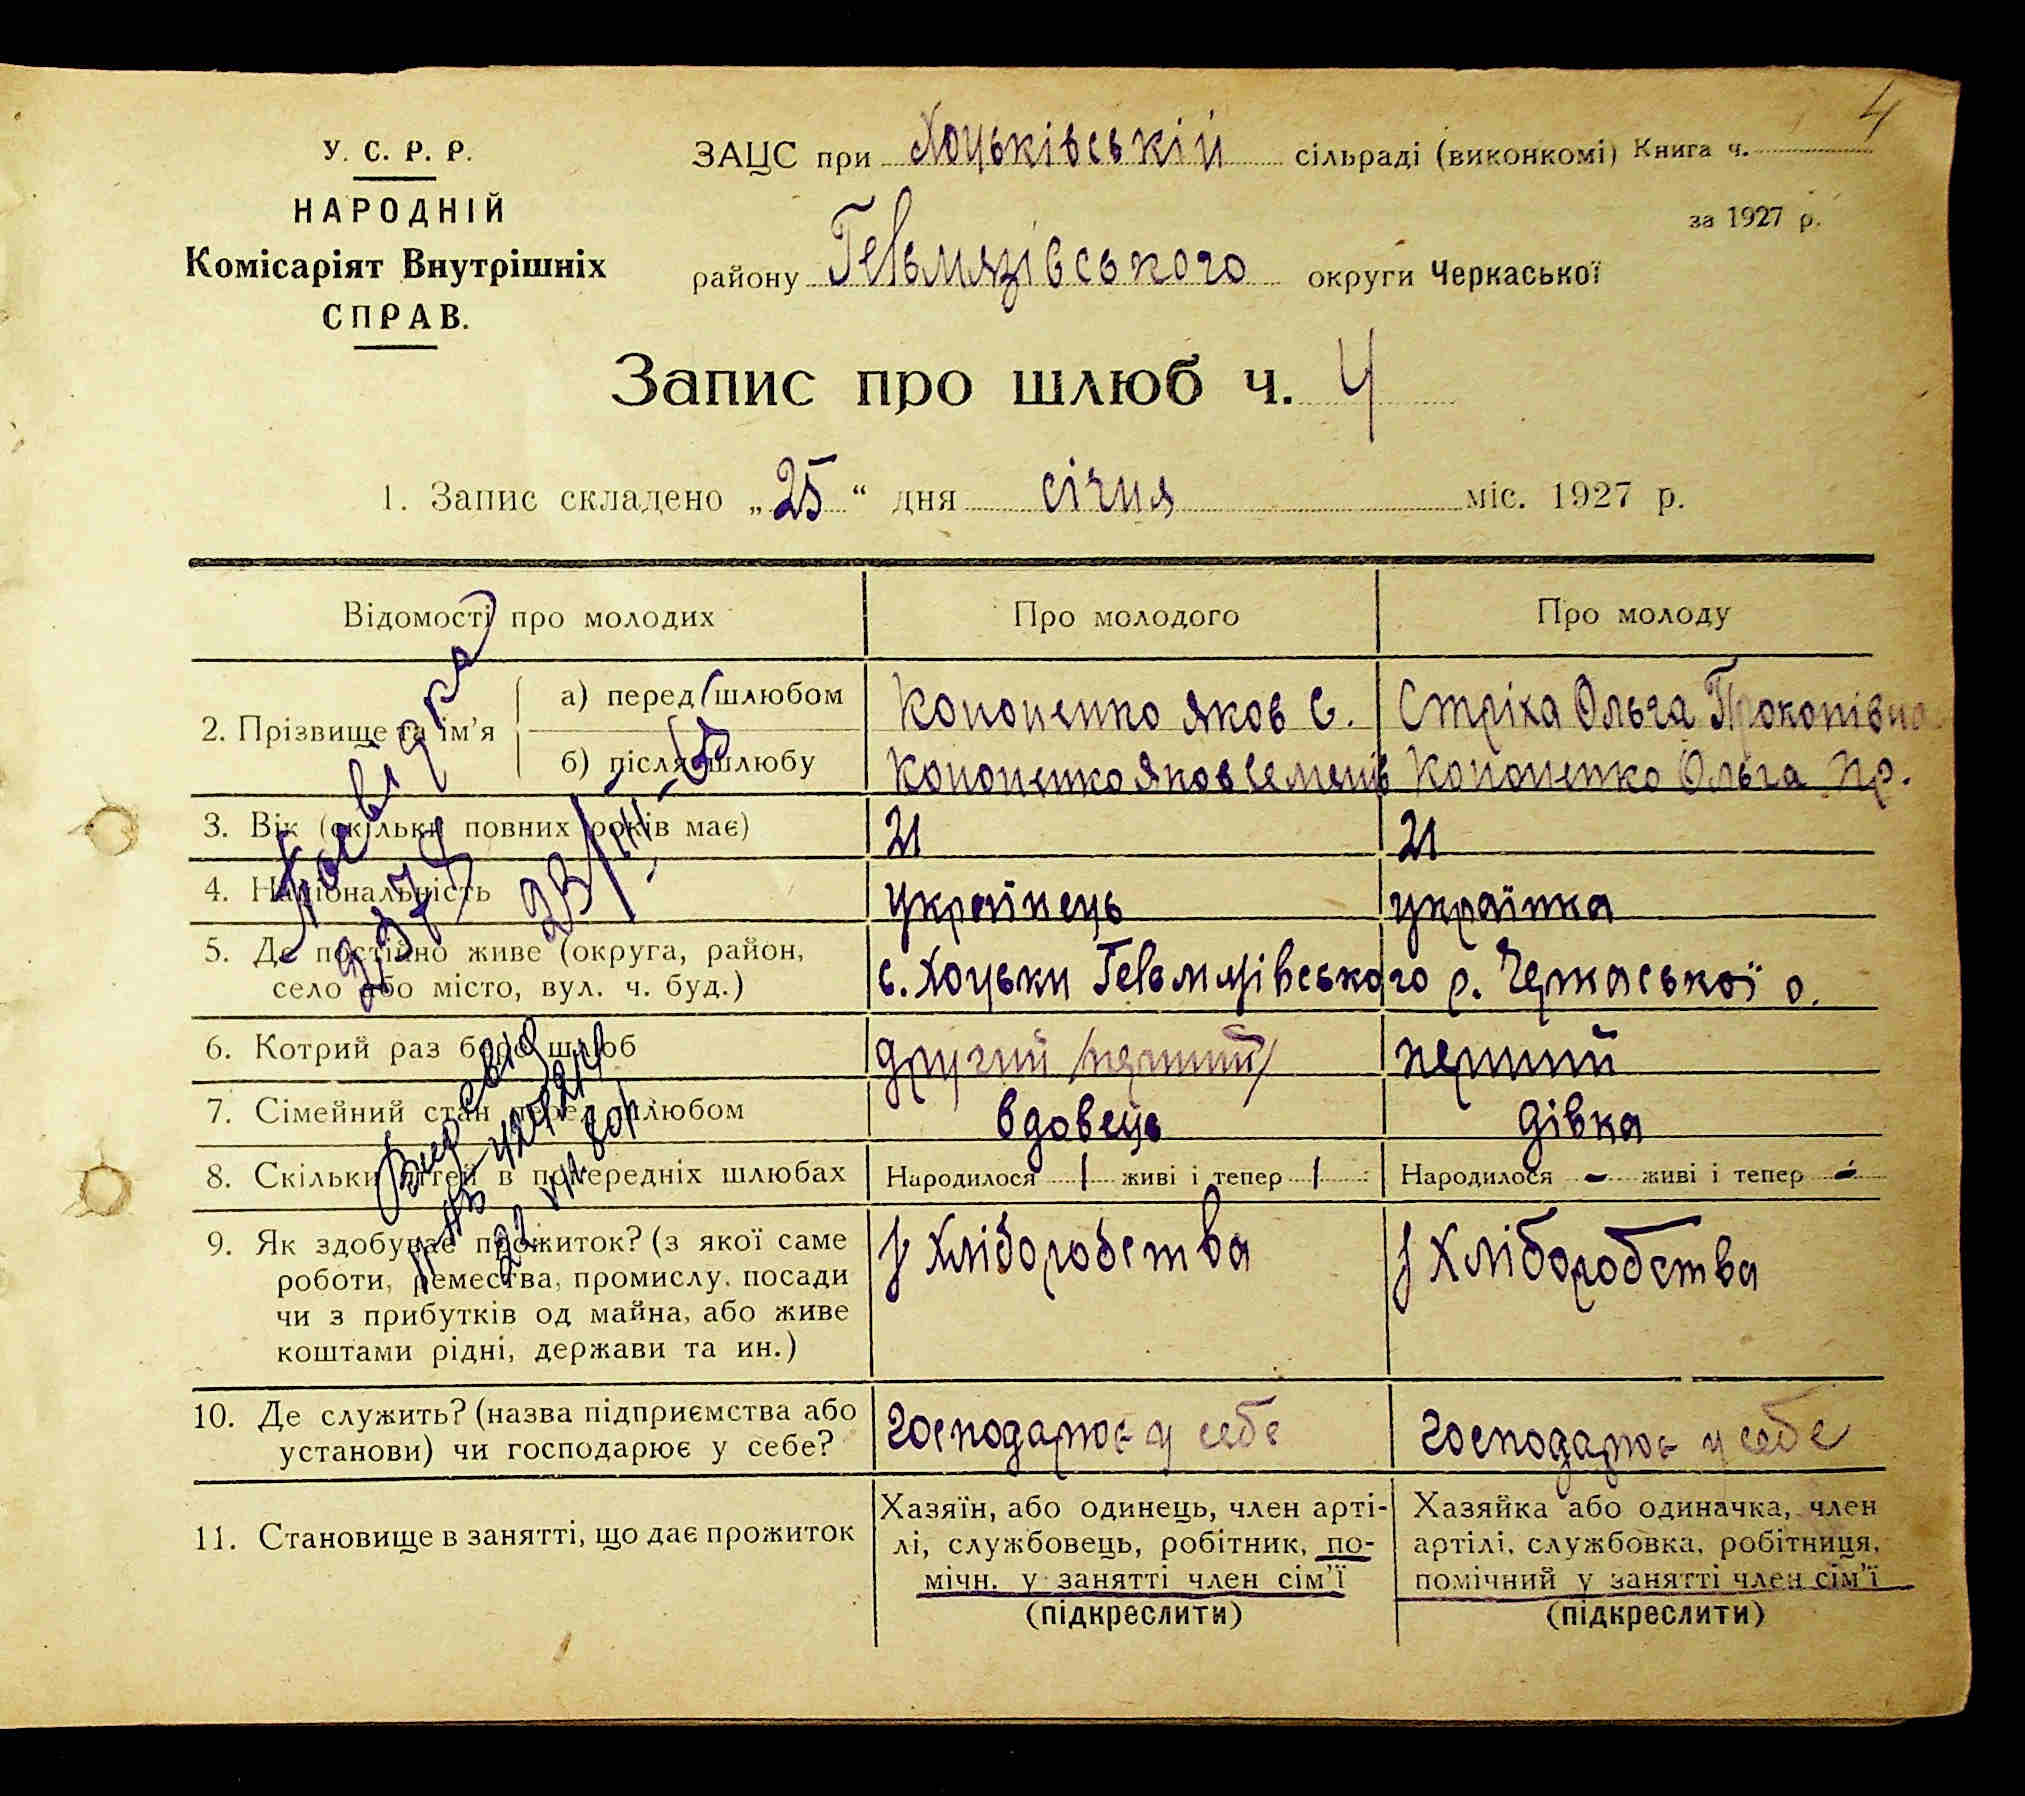 4
У. С. Р. Р.
НАРОДНІЙ
Комісаріят Внутрішніх
СПРАВ.
ЗАЦС при Хоцьківській сільраді (виконкомі) Книга ч.
за 1927 р.
району Гельмязівського округи Черкаської
Запис про шлюб ч. 4
1. Запис складено „25“ дня січня міс. 1927 р.
Відомості про молодих Про молодого Про молоду
2. Прізвище та ім’я
а) перед шлюбом Кононенко Яков С. Стріха Ольга Прокопівна
б) після шлюбу Кононенко Яков Семенів Кононенко Ольга Пр.
3. Вік (скільки повних років має) 21 21
4. Національність українець українка
5. Де постійно живе (округа, район,
село або місто, вул. ч. буд.) с. Хоцьки Гельмязівського р. Черкаської о.
6. Котрий раз бере шлюб другий /перший/ перший
7. Сімейний стан перед шлюбом вдовець дівка
8. Скільки дітей в попередніх шлюбах Народилося 1 живі і тепер 1 Народилося - живі і тепер -
9. Як здобуває прожиток? (з якої саме
роботи, ремества, промислу, посади
чи з прибутків од майна, або живе
коштами рідні, держави та ин.)
з хліборобства з хліборобства
10. Де служить? (назва підприємства або
установи) чи господарює у себе?
господарює у себе господарює у себе
11. Становище в занятті, що дає прожиток
Хазяїн, або одинець, член арті-
лі, службовець, робітник, по-
мічн. у занятті член сім’ї
(підкреслити)
Хазяйка або одиначка, член
артілі, службовка, робітниця,
помічний у занятті член сім’ї
(підкреслити)